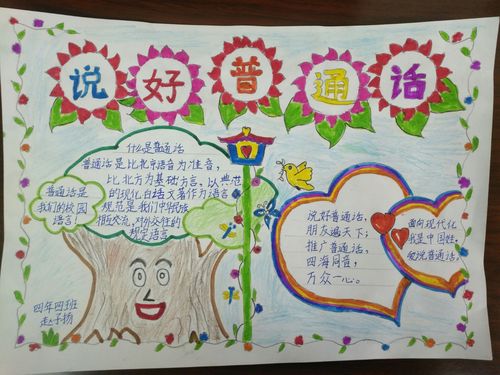 说好普通话
什么是普通话
普通话是比北京语音为准音，
比北方为基础方言，以典范
的现代白话文著作为语言
规范是我们中华民族
相互交流，对外交往的
规定语言
普通话是
我们的校园
语言
说好普通话，
朋友遍天下；
推广普通话，
四海同音，
万众一心。
面向现代化
我是中国娃，
爱说普通话，
四年四班
赵子扬